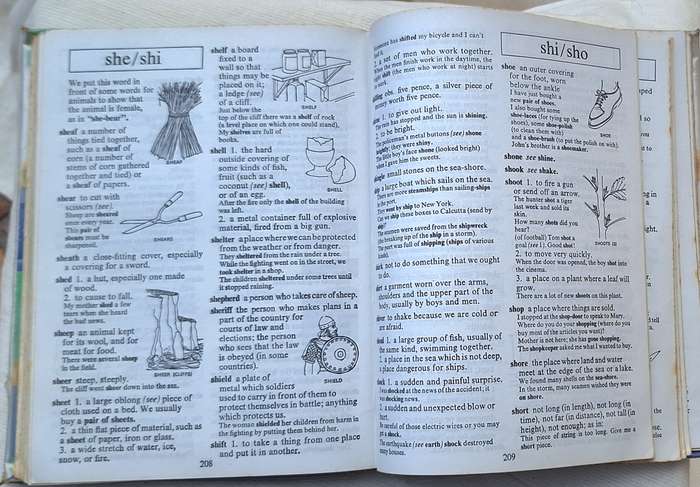 she/shi
We put this word in
front of some words for
animals to show that
the animal is female,
as in "she-bear".
sheaf a number of
things tied together,
such as a sheaf of
corn (a number of
stems of corn gathered
together and tied) or
a sheaf of papers.
SHEAF
shear to cut with
SCISSORS (see).
Sheep are sheared
once every year.
This pair of
shears must be
sharpened.
SHEARS
sheath a close-fitting cover, especially
a covering for a sword.
shed 1. a hut, especially one made
of wood.
2. to cause to fall.
My mother shed a few
tears when she heard
the bad news.
sheep an animal kept
for its wool, and for
meat for food.
There were several sheep
in the field.
SHEER (CLIFFS)
sheer steep, steeply.
The cliff went sheer down into the sea.
sheet 1. a large oblong (see) piece of
cloth used on a bed. We usually
buy a pair of sheets.
2. a thin flat piece of material, such as
a sheet of paper, iron or glass.
3. a wide stretch of water, ice,
snow, or fire.
shelf a board
fixed to a
wall so that
things may be
placed on it;
a ledge (see)
of a cliff.
SHELF
Just below the
top of the cliff there was a shelf of rock
(a level place on which one could stand).
My shelves are full of
books.
shell 1. the hard
outside covering of
some kinds of fish,
fruit (such as a
coconut (see) shell),
or of an egg.
SHELL
After the fire only the shell of the building
was left.
2. a metal container full of explosive
material, fired from a big gun.
shelter a place where we can be protected
from the weather or from danger.
They sheltered from the rain under a tree.
While the fighting went on in the street, we
took shelter in a shop.
The children sheltered under some trees until
it stopped raining.
shepherd a person who takes care of sheep.
sheriff the person who makes plans in a
part of the country for
courts of law and
elections; the person
who sees that the law
is obeyed (in some
countries).
SHIELD
shield a plate of
metal which soldiers
used to carry in front of them to
protect themselves in battle; anything
which protects us.
The woman shielded her children from harm in
the fighting by putting them behind her.
shift 1. to take a thing from one place
and put it in another.
208
shi/sho
Someone has shifted my bicycle and I can't
find it.
2. a set of men who work together.
When the men finish work in the daytime, the
shift (the men who work at night) starts
work.
shilling obs. five pence, a silver piece of
money worth five pence.
1. to give out light.
The rain has stopped and the sun is shining.
2. to be bright.
The policeman's metal buttons (see) shone
brightly; they were shiny.
The little boy's face shone (looked bright)
when I gave him the sweets.
shingle small stones on the sea-shore.
ship a large boat which sails on the sea.
There are more steamships than sailing-ships
in the port.
They went by ship to New York.
Can we ship these boxes to Calcutta (send by
ship)?
The seamen were saved from the shipwreck
(the breaking up of the ship in a storm).
The port was full of shipping (ships of various
kinds).
shirk not to do something that we ought
to do.
shirt a garment worn over the arms,
shoulders and the upper part of the
body, usually by boys and men.
shiver to shake because we are cold or
are afraid.
shoal 1. a large group of fish, usually of
the same kind, swimming together.
2. a place in the sea which is not deep,
a place dangerous for ships.
shock 1. a sudden and painful surprise.
I was shocked at the news of the accident; it
was shocking news.
2. a sudden and unexpected blow or
hurt.
Be careful of those electric wires or you may
get a shock.
The earthquake (see earth) shock destroyed
many houses.
shoe an outer covering
for the foot, worn
below the ankle
I have just bought a
new pair of shoes.
I also bought some
shoe-laces (for tying up the
shoes), some shoe-polish
(to clean them with)
and a shoe-brush (to put the polish on with).
John's brother is a shoemaker.
SHOE
shone see shine.
shook see shake.
shoot 1. to fire a gun
or send off an arrow.
The hunter shot a tiger
last week and sold its
skin.
How many shots did you
hear?
(of football) Tom shot a
goal (see 1). Good shot!
SHOOTS (3)
2. to move very quickly.
When the door was opened, the boy shot into
the cinema.
3. a place on a plant where a leaf will
grow.
There are a lot of new shoots on this plant.
shop a place where things are sold.
I stopped at the shop-door to speak to Mary.
Where do you do your shopping (where do you
buy most of the articles you want)?
Mother is not here; she has gone shopping.
The shopkeeper asked me what I wanted to buy.
shore the place where land and water
meet at the edge of the sea or a lake.
We found many shells on the sea-shore.
In the storm, many seamen wished they were
on shore.
short not long (in length), not long (in
time), not far (in distance), not tall (in
height), not enough; as in:
This piece of string is too long. Give me a
short piece.
209